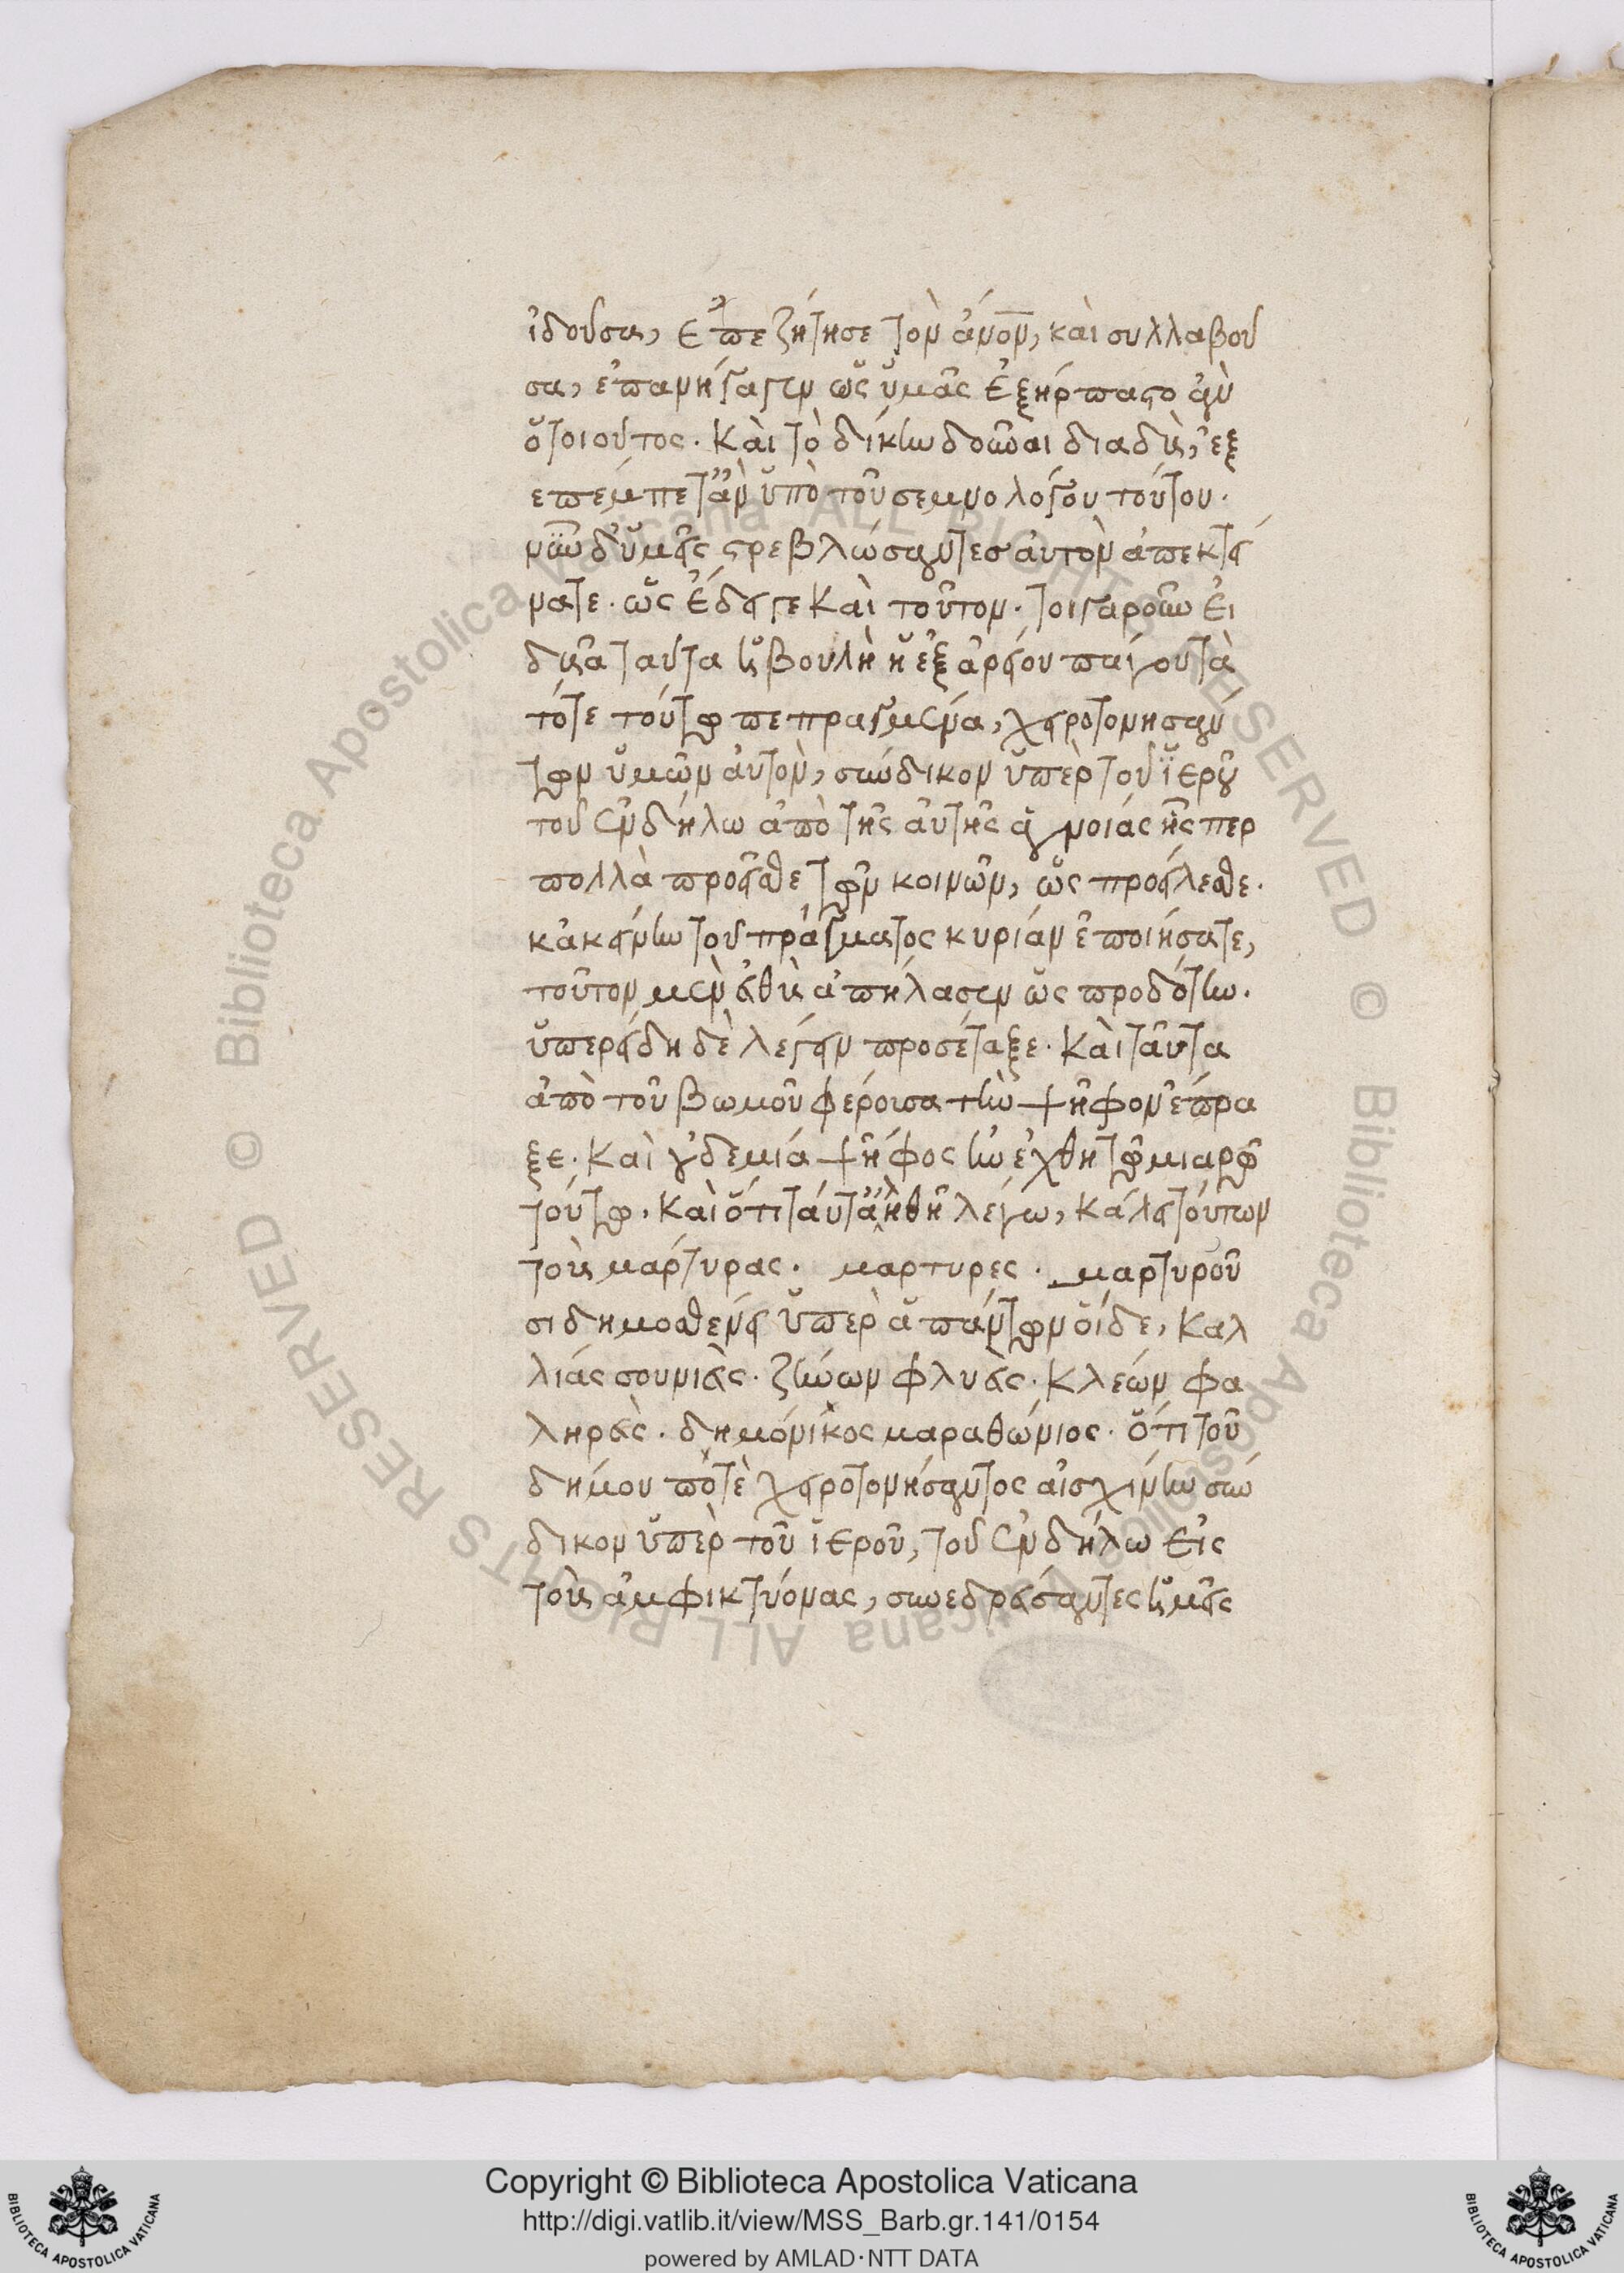 ἰδοῦσα, ἐπεζήτησε τὸν ἄνον, καὶ συλλαβοῦ
σα, ἐπανήγαγεν ὡς ὑμᾶς ἐξήρπαστο ἂν
ὁ τοιοῦτος. Καὶ τὸ δίκην δοῦναι διαδὺς, ἐξ
επέμπετ' ἂν ὑπὸ τοῦ σεμνολόγου τούτου.
νῦν δ' ὑμεῖς στρεβλώσαντες αὐτὸν ἀπεκτεί
νατε. ὡς ἔδει γε καὶ τοῦτον. τοιγαροῦν εἰ
δυῖα ταῦτα ἡ βουλὴ ἡ ἐξ ἀρείου πάγου τὰ
τότε τούτῳ πεπραγμένα, χειροτονησάν
των ὑμῶν αὐτὸν, σύνδικον ὑπὲρ τοῦ ἱεροῦ
τοῦ ἐν δήλω ἀπὸ τῆς αὐτῆς ἀγνοίας ἧς περ
πολλὰ προεῖσθε τῶν κοινῶν, ὡς προείλεσθε.
κἀκείνην τοῦ πράγματος κυρίαν ἐποιήσατε,
τοῦτον μὲν εὐθὺς ἀπήλασεν ὡς προδότην.
ὑπερείδη δὲ λέγειν προσέταξε. Καὶ ταῦτα
ἀπὸ τοῦ βωμοῦ φέρουσα τὴν ψῆφον ἔπρα
ξε. Καὶ οὐδεμία ψῆφος ἠνέχθη τῷ μιαρῷ
τούτῳ. Καὶ ὅτι ταῦτ' ἀληθῆ λέγω, κάλει τούτων
τοὺς μάρτυρας. μάρτυρες. μαρτυροῦ
σι δημοσθένει ὑπὲρ ἁπάντων οἵδε, Καλ
λίας σουνιεὺς. ζήνων φλυεὺς. Κλέων φα
ληρεὺς. δημόνικος μαραθώνιος. ὅτι τοῦ
δήμου ποτὲ χειροτονήσαντος αἰσχίνην σύν
δικον ὑπὲρ τοῦ ἱεροῦ, τοῦ ἐν δήλω εἰς
τοὺς ἀμφικτύονας, συνεδρεύσαντες ἡμεῖς
Copyright © Biblioteca Apostolica Vaticana
http://digi.vatlib.it/view/MSS_Barb.gr.141/0154
powered by AMLAD·NTT DATA